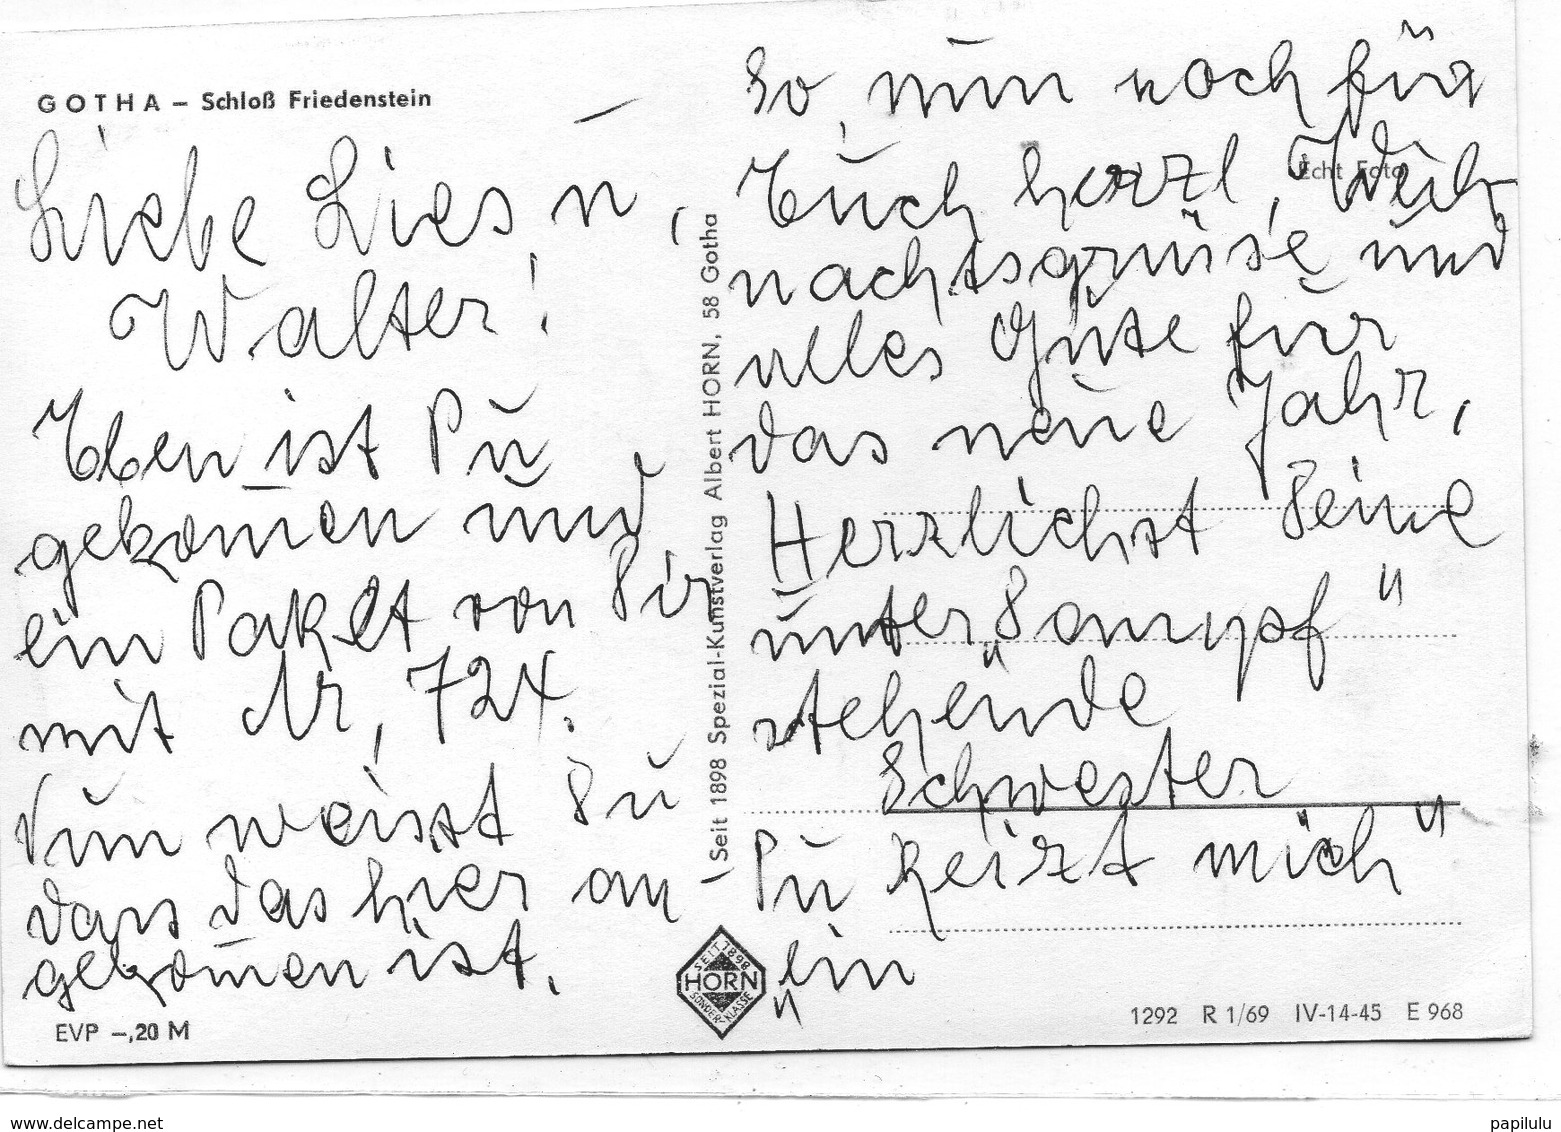 GOTHA – Schloß Friedenstein
Liebe Lies u,
Walter!
Eben ist Du
gekom̄en und
ein Paket von Dir
mit Nr, 724.
Nun weisst Du
dass das hier an-
gekom̄en ist.
EVP –,20 M
Seit 1898 Spezial-Kunstverlag Albert HORN, 58 Gotha
SEIT 1898
HORN
SONDER-KLASSE
So, nun noch für
Echt Foto
Euch herzl, Weih-
nachtsgrüsse und
alles Gute für
das neue Jahr,
Herzlichst Deine
unter „Dampf"
stehende
Schwester
Du heizt mich"
„ein
1292 R 1/69 IV-14-45 E 968
www.delcampe.net
papilulu